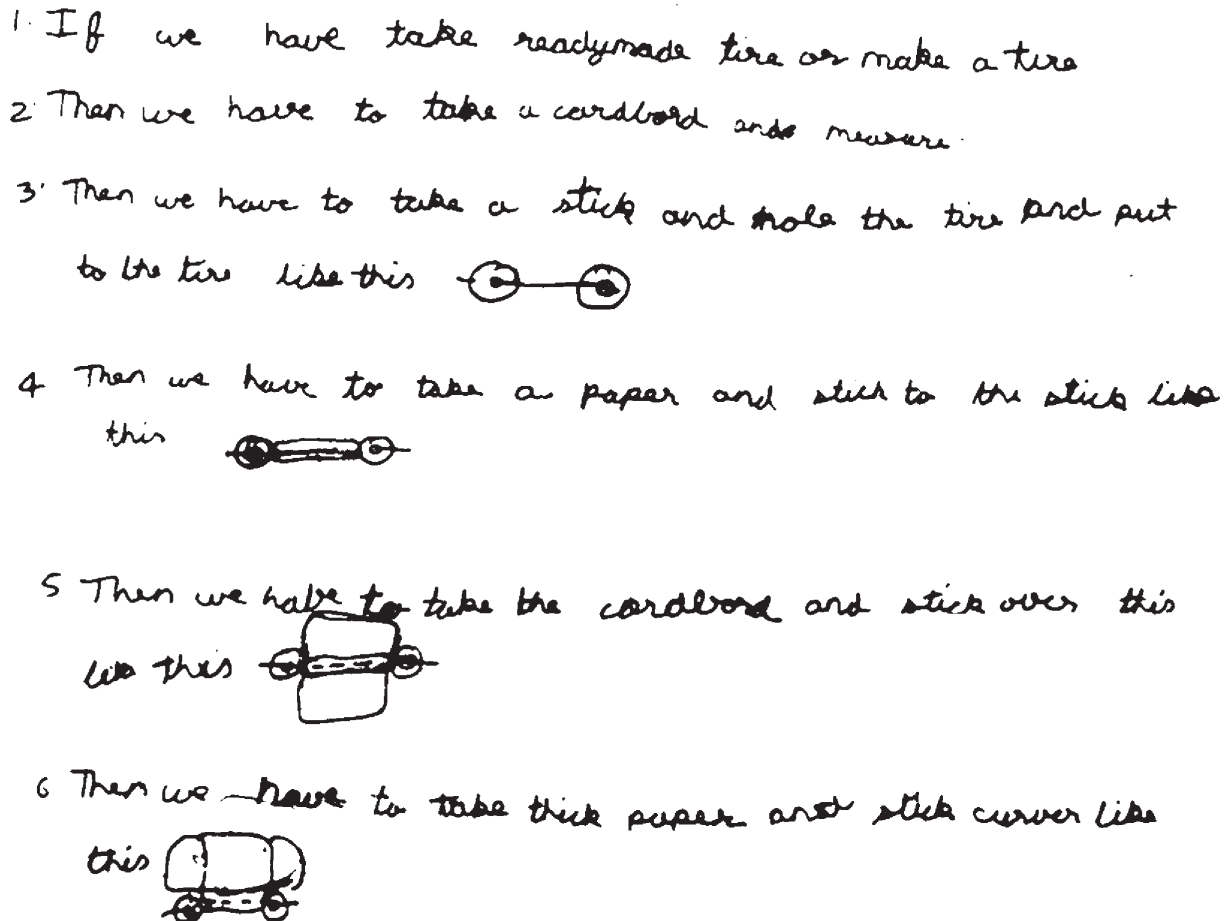 1. If we have take readymade tire or make a tire
2. Then we have to take a cardbord and measure.
3. Then we have to take a stick and hole the tire and put
to the tire like this
4 Then we have to take a paper and stick to the stick like
this
5 Then we habe to take the cordbord and stick over this
like this
6 Then we have to take thick paper and stick curver like
this